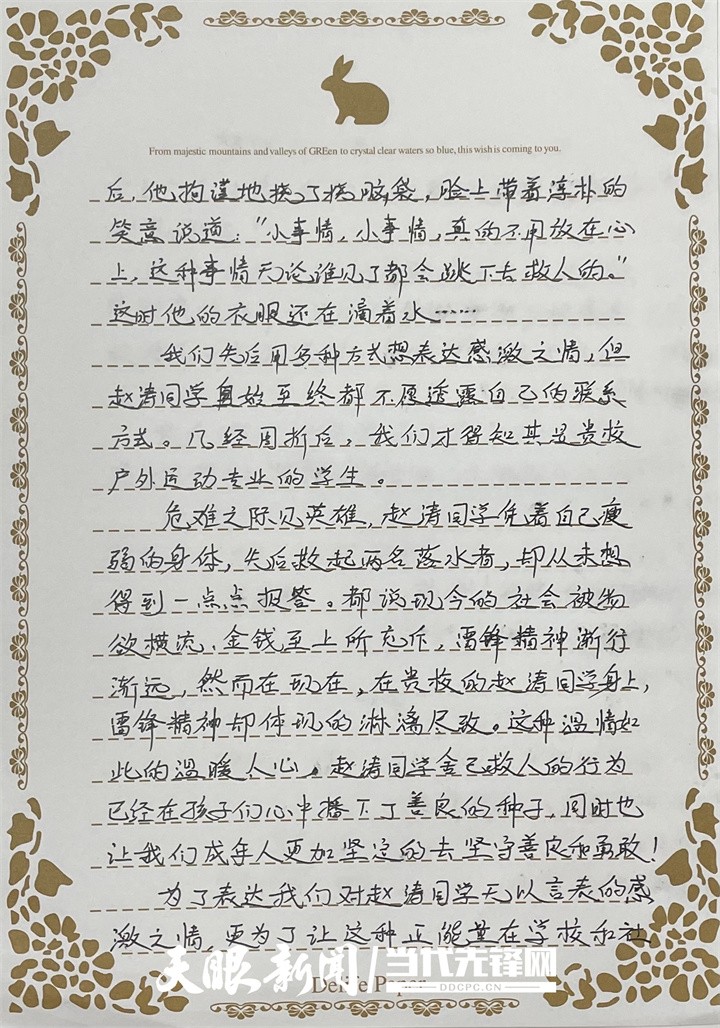 From majestic mountains and valleys of GREen to crystal clear waters so blue, this wish is coming to you.
后，他拘谨地挠了挠脑袋，脸上带着淳朴的
笑意说道："小事情，小事情，真的不用放在心
上，这种事情无论谁见了都会跳下去救人的。"
这时他的衣服还在滴着水……
我们先后用多种方式想表达感激之情，但
赵涛同学自始至终都不愿透露自己的联系
方式。几经周折后，我们才得知其是贵校
户外运动专业的学生。
危难之际见英雄，赵涛同学凭着自己瘦
弱的身体，先后救起两名落水者，却从未想
得到一点点报答。都说现今的社会被物
欲横流、金钱至上所充斥，雷锋精神渐行
渐远，然而在现在，在贵校的赵涛同学身上，
雷锋精神却体现的淋漓尽致。这种温情如
此的温暖人心。赵涛同学舍己救人的行为
已经在孩子们心中播下了善良的种子，同时也
让我们成年人更加坚定的去坚守善良和勇敢！
为了表达我们对赵涛同学无以言表的感
激之情，更为了让这种正能量在学校和社
天眼新闻 当代先锋网
DDCPC.CN
Paper